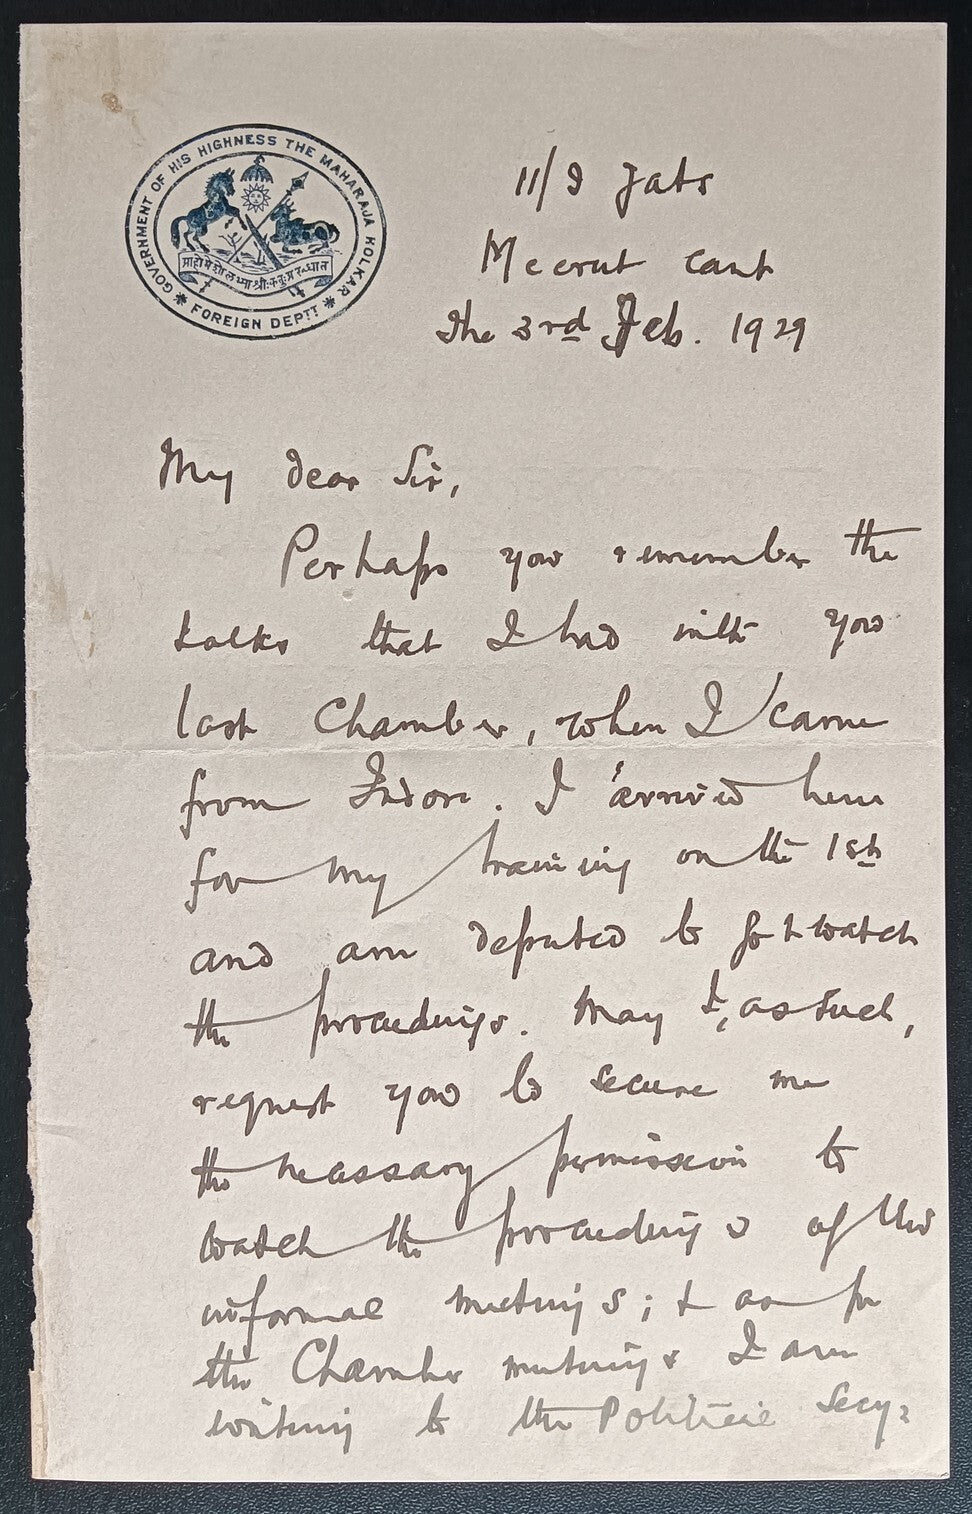 GOVERNMENT OF HIS HIGHNESS THE MAHARAJA HOLKAR
FOREIGN DEPTT
11/9 Jats
Meerut Cant
The 3rd Feb. 1929
My dear Sir,
Perhaps you remember the
talks that I had with you
last Chamber, when I came
from Indore. I arrived here
for my training on the 1st
and am deputed to watch
the proceedings. May I, as such,
request you to secure me
the necessary permission to
watch the proceedings of the
informal meetings; & as for
the Chamber meetings I am
writing to the Political Secy: